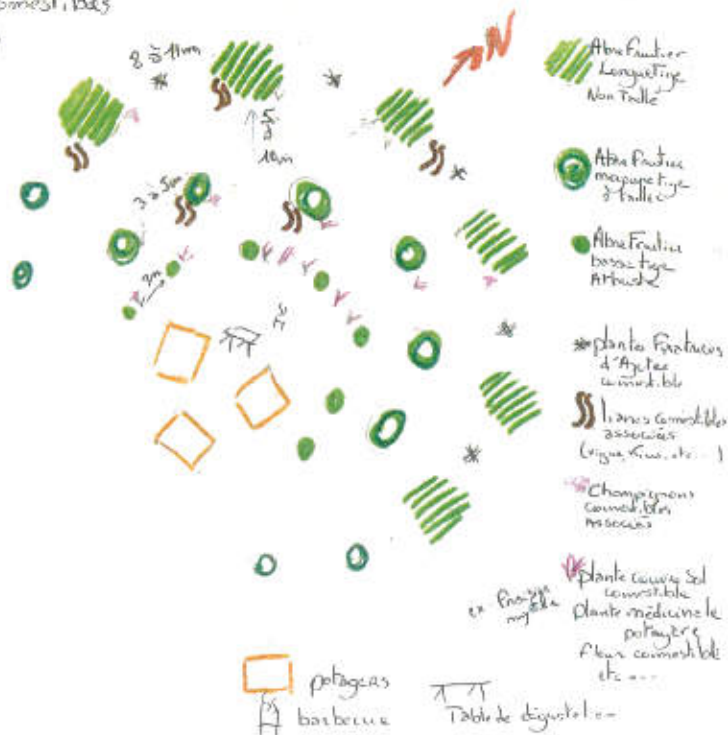 comestibles
8 à 11m
5
à
10m
3 à 5m
3m
N
Arbre Fruitier
Longue tige
Non Taillé
Arbre Fruitier
à tailler
Arbre Fruitier
basse tige
Arbuste
plantes Fixatrices
d'Azote
comestible
lianes comestibles
associées
(vigne, Kiwi, etc...)
Champignons
comestibles
Associés
plante couvre Sol
comestible
ex Fraisier
Plante médicinale
potagère
fleur comestible
etc...
potagers
barbecue
Table de dégustation